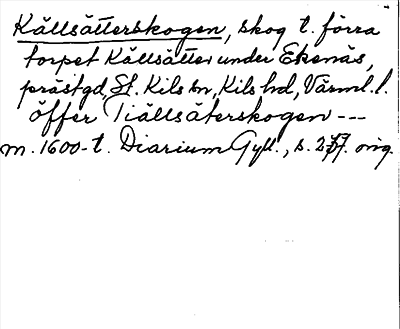 Källsätterskogen, skog t. förra
torpet Källsätter under Ekenäs,
prästgd, St. Kils sn, Kils hd, Värml. l.
öffer Tiällsåterskogen ---
m. 1600-t. Diarium Gyll., s. 277. orig.